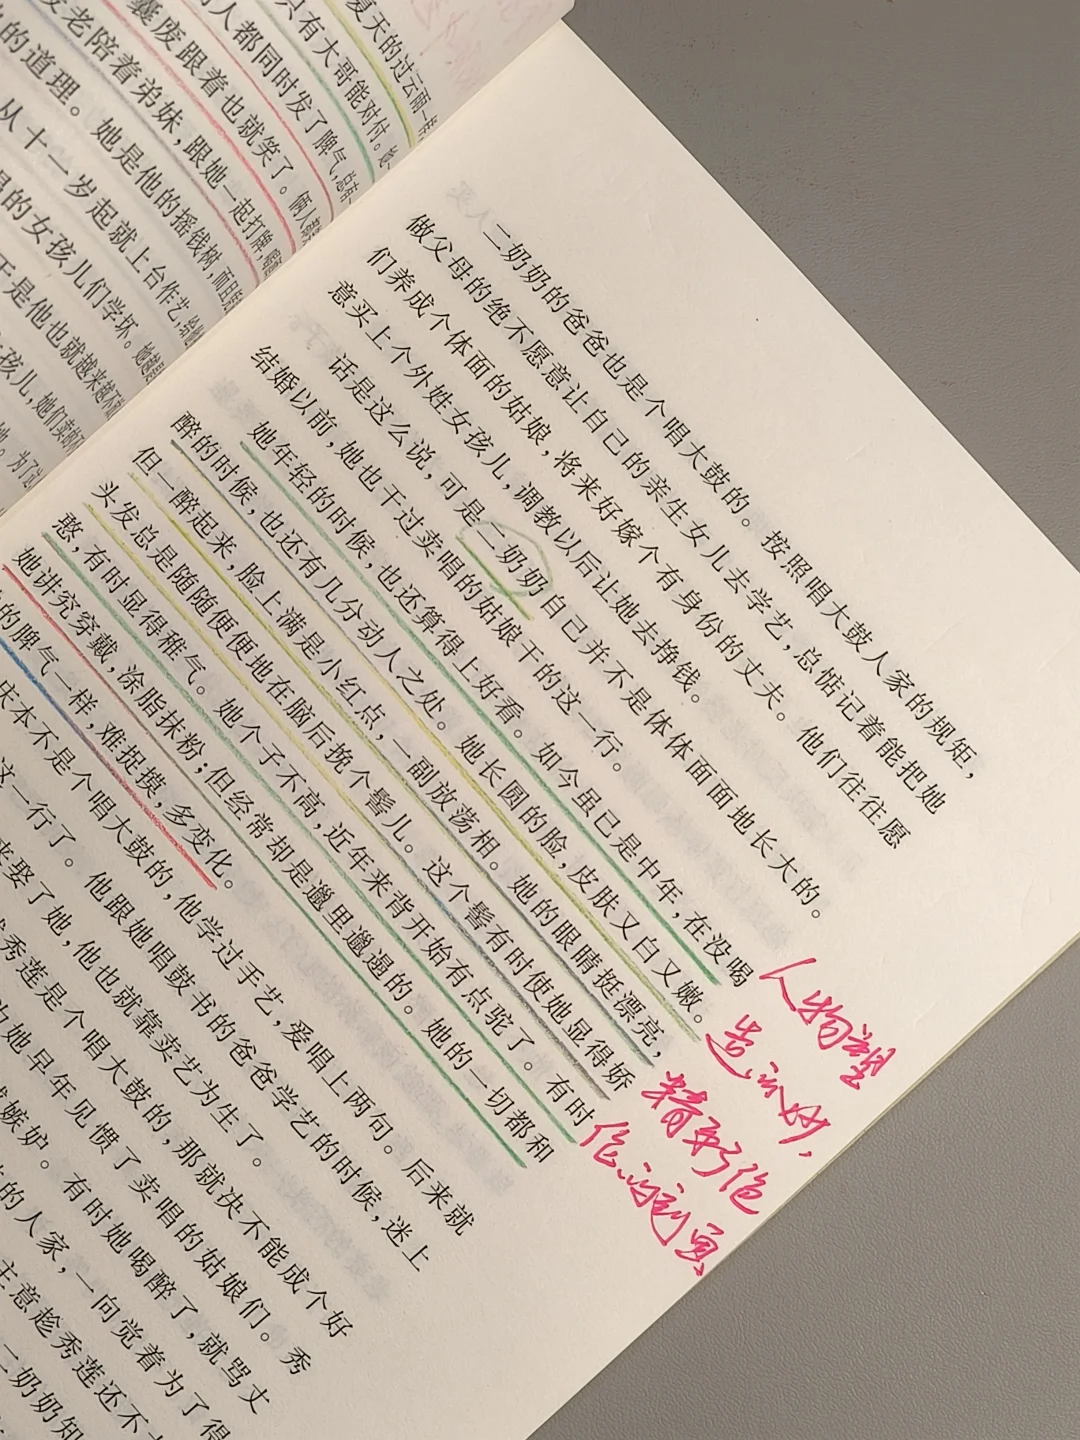 夏天的过云雨一样
只有大哥能对付。
人都同时发了脾气,
囊废跟着也就笑了。俩人都
老陪着弟妹,跟她一起打牌,
的道理。她是他的摇钱树,而且
从十一岁起就上台作艺,给他
唱的女孩儿们学坏。她越是
于是他也就越来越不
女孩儿,她们卖的不
她。为了这
二奶奶的爸爸也是个唱大鼓的。按照唱大鼓人家的规矩,
做父母的绝不愿意让自己的亲生女儿去学艺,总惦记着能把她
们养成个体面的姑娘,将来好嫁个有身份的丈夫。他们往往愿
意买上个外姓女孩儿,调教以后让她去挣钱。
话是这么说,可是二奶奶自己并不是体体面面地长大的。
结婚以前,她也干过卖唱的姑娘干的这一行。
她年轻的时候,也还算得上好看。如今虽已是中年,在没喝
醉的时候,也还有几分动人之处。她长圆的脸,皮肤又白又嫩。
但一醉起来,脸上满是小红点,一副放荡相。她的眼睛挺漂亮,
头发总是随随便便地在脑后挽个髻儿。这个髻有时使她显得娇
憨,有时显得稚气。她个子不高,近年来背开始有点驼了。有时
她讲究穿戴,涂脂抹粉;但经常却是邋里邋遢的。她的一切都和
的脾气一样,难捉摸,多变化。
庆本不是个唱大鼓的,他学过手艺,爱唱上两句。后来就
这一行了。他跟她唱鼓书的爸爸学艺的时候,迷上
来娶了她,他也就靠卖艺为生了。
秀莲是个唱大鼓的,那就决不能成个好
为她早年见惯了卖唱的姑娘们。秀
嫉妒。有时她喝醉了,就骂丈
的人家,一向觉着为了得
主意趁秀莲还不
二奶奶知
人物塑
造
精彩绝